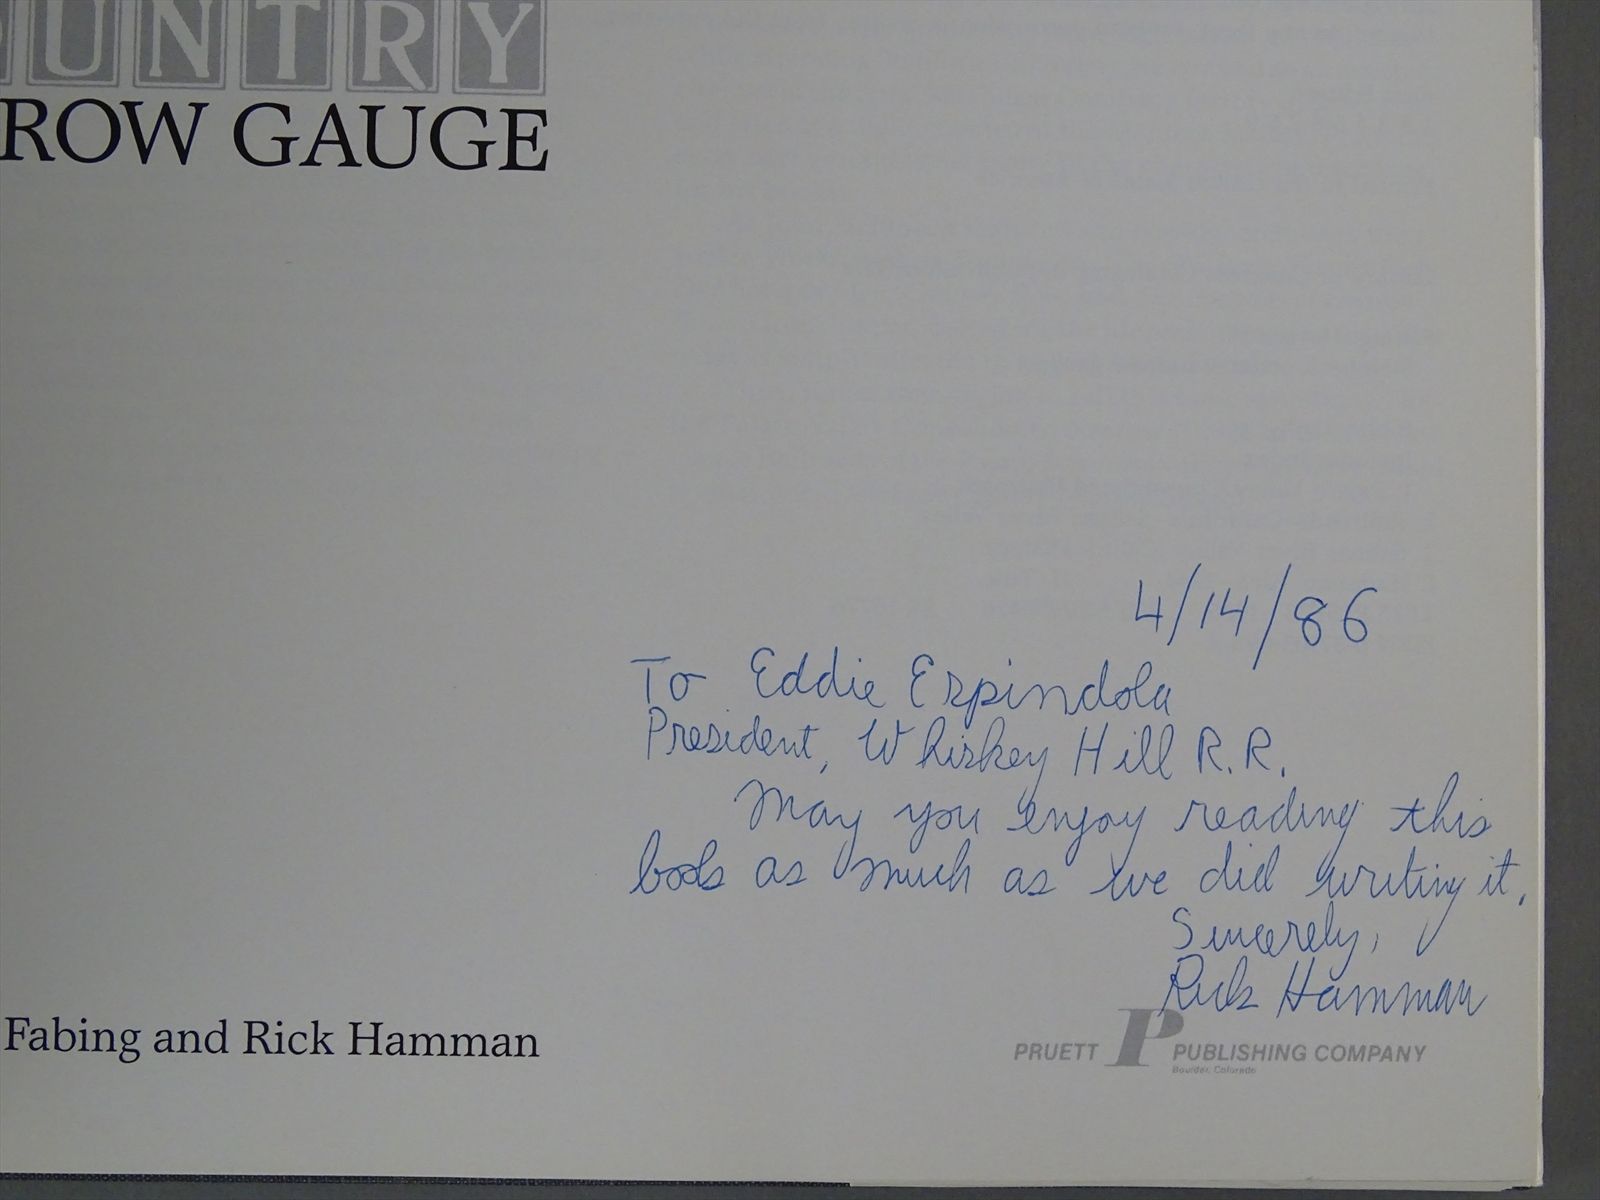 OUNTRY
ROW GAUGE
4/14/86
To Eddie Espindola
President, Whiskey Hill R.R.
May you enjoy reading this
book as much as we did writing it.
Sincerely,
Rick Hamman
Fabing and Rick Hamman
PRUETT P PUBLISHING COMPANY
Boulder, Colorado